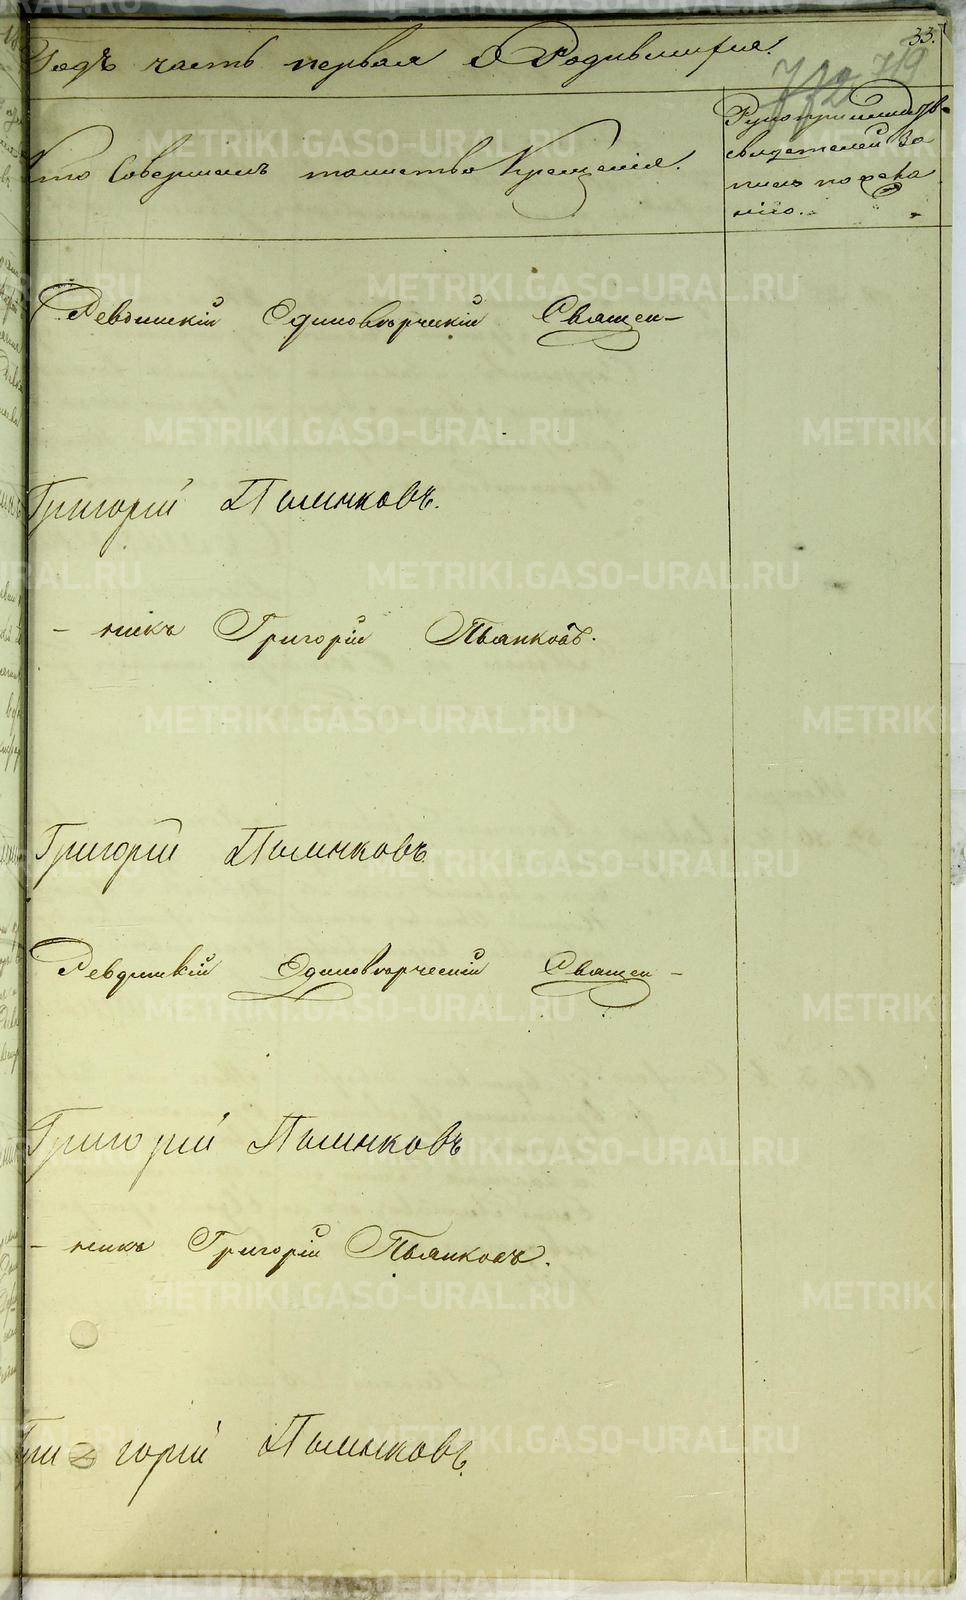 33.
Годъ часть первая о Родившихся.
719
Кто Совершалъ таинство Крещенія.
Рукоприкладство
свидетелей за
пись по жела
нію.
Ревдинскій Единоверческій Священ-
Григорій Пьянковъ.
- никъ Григорій Пьянковъ.
Григорій Пьянковъ
Ревдинскій Единоверческій Священ-
Григорій Пьянковъ
- никъ Григорій Пьянковъ.
Григорій Пьянковъ.
METRIKI.GASO-URAL.RU